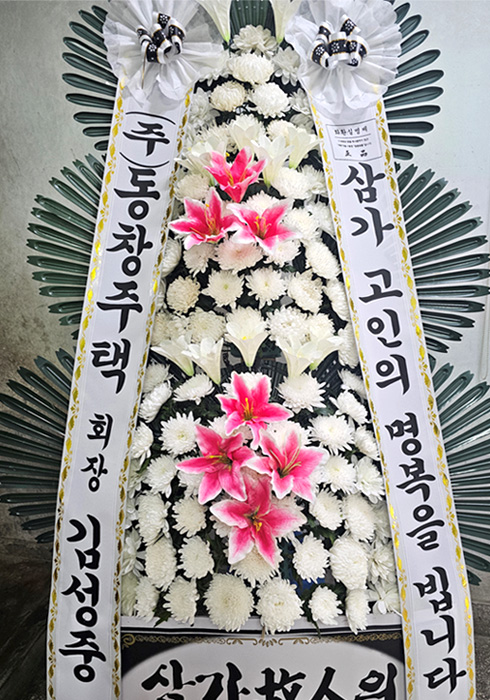 (주)동창주택 회장 김성중
삼가 고인의 명복을 빕니다
삼가 故人의